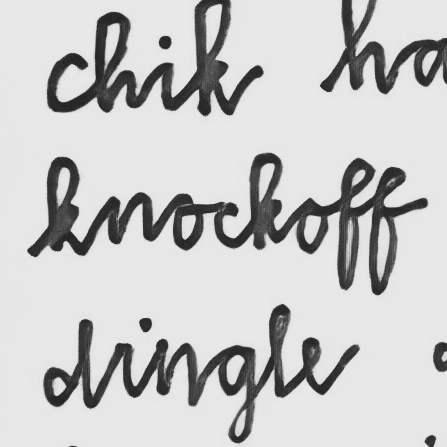 chik ha
knockoff
dringle